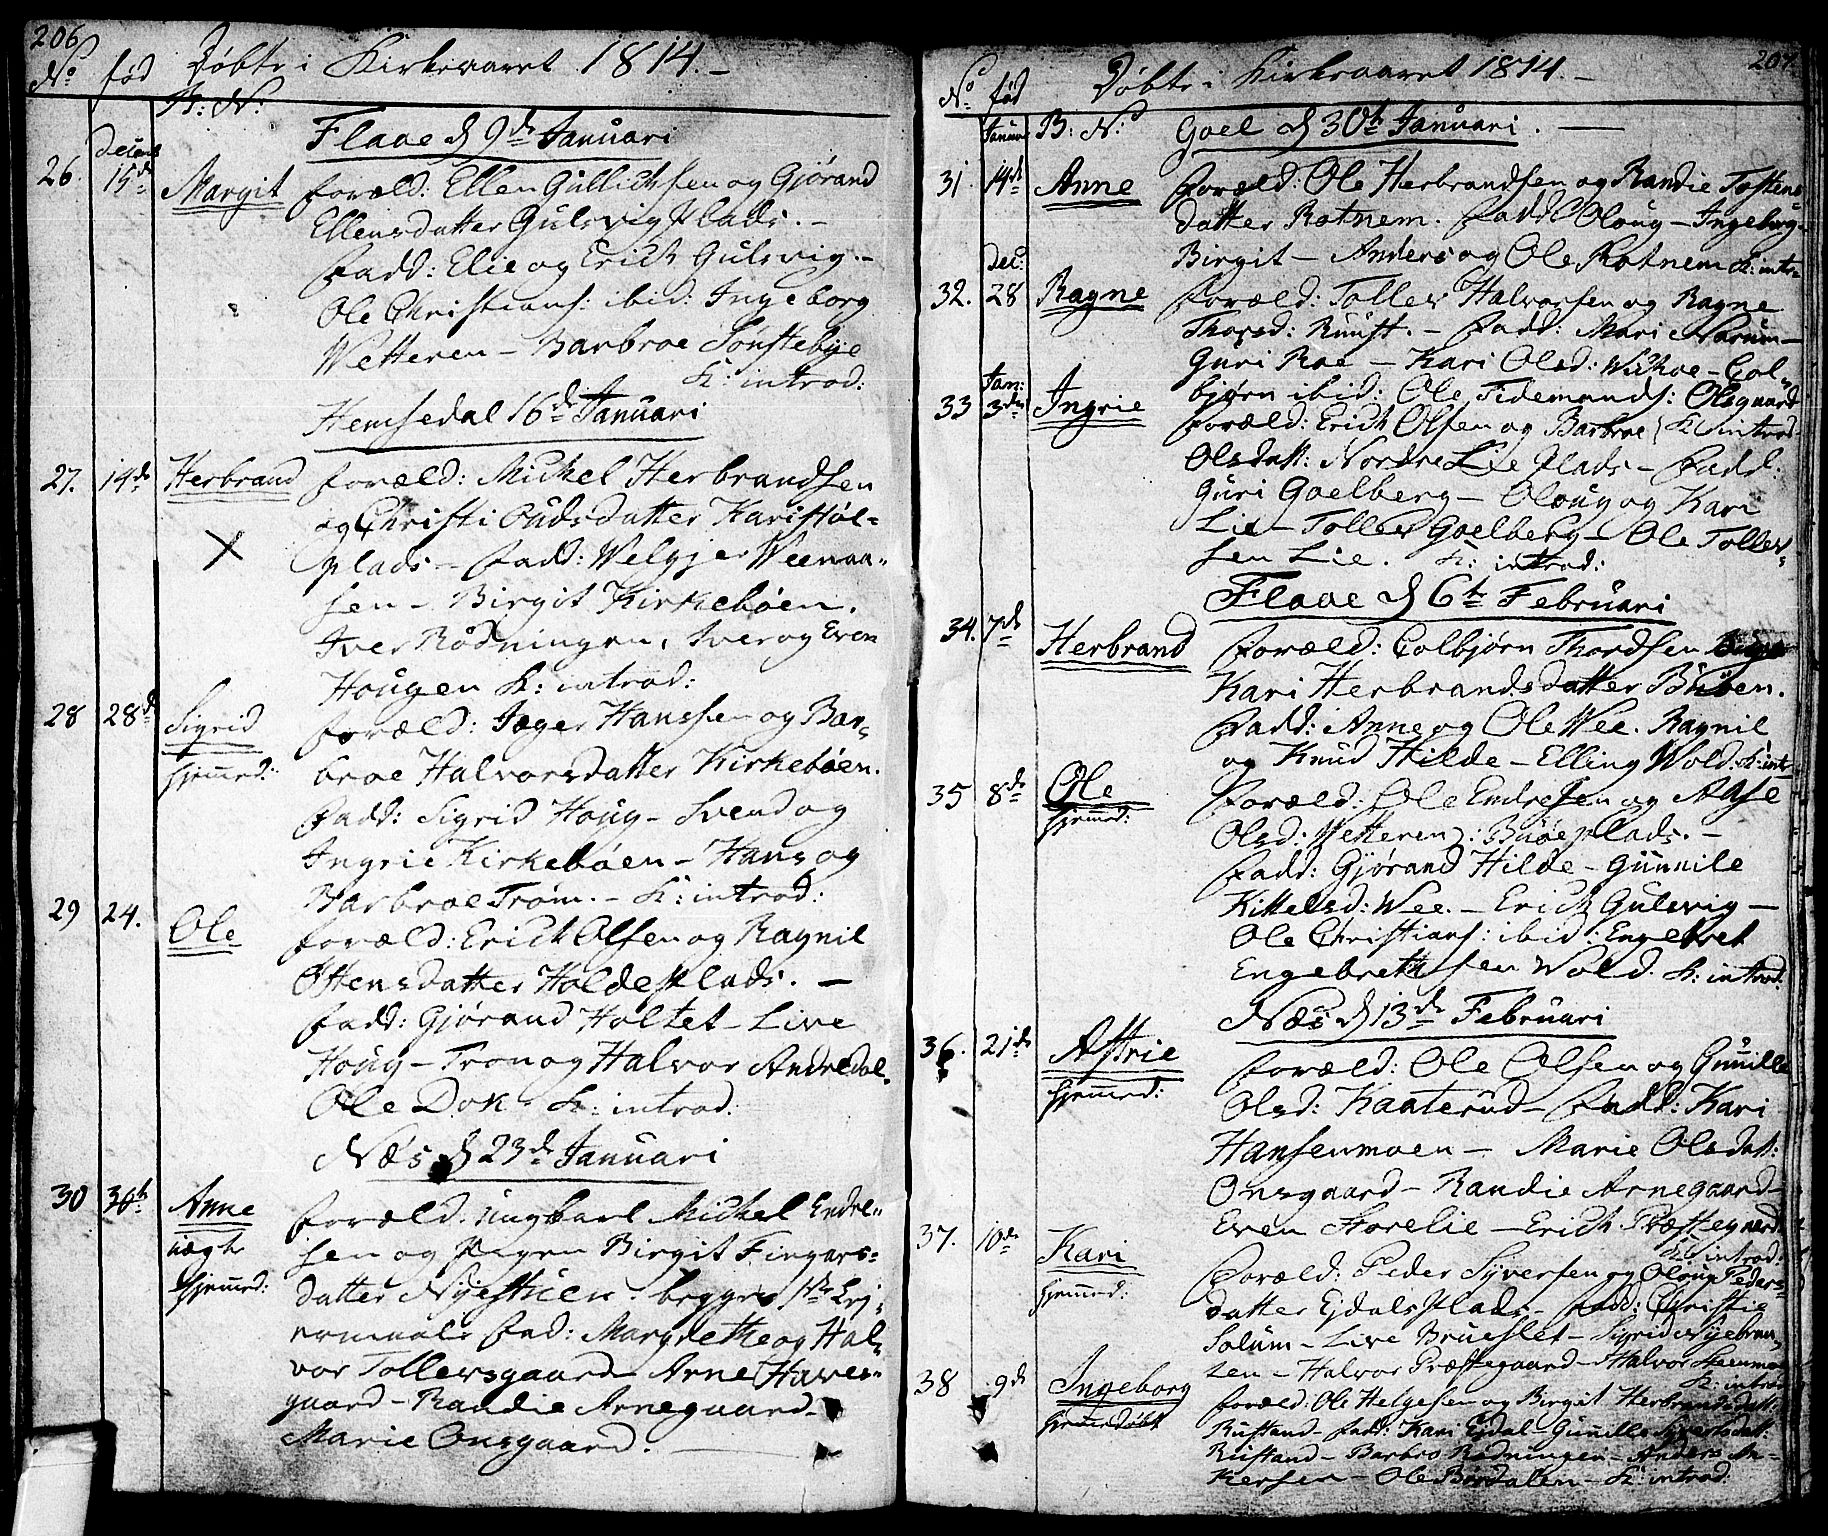 206
No fød Døbte i Kirkeaaret 1814.-
B: N:
Flaae d 9de Januari
Decemb
26. 15de Margit Foræld: Ellen Gullichsen og Gjørand
Ellensdatter Gulsvig Plads. -
Fadd: Elie og Erich Gulsvig. -
Ole Christians: ibid: Ingeborg
Wetteren - Barbroe Sønstebye
K: introd:
Hemsedal 16de Januari
27. 14de Herbrand Foræld: Michel Herbrandsen
og Christi Oudsdatter Karistøl-
plads - Fadd: Welgjer Weenaa-
sen - Birgit Kirkebøen.
Iver Rødningen, Iver og Even
Hougen K: introd:
28 28de Sigrid Foræld: Jæger Hanssen og Bar-
hjemed: broe Halvorsdatter Kirkebøen.
Fadd: Sigrid Houg - Svend og
Ingrie Kirkebøen - Hans og
Barbroe Trøm. - K: introd:
29 24. Ole Foræld: Erich Olsen og Ragnil
Østensdatter Holde Plads. -
Fadd: Gjørand Holtet - Live
Houg - Tron og Halvor Andredal.
Ole Dok - K: introd:
Næs d 23de Januari
30 30te Anne Foræld. ungkarl Michel Endre-
uægte sen og Pigen Birgit Fingars-
hjemed: datter Nyestuen. begges 1ste Lej-
ermaal. Fad: Margrethe og Hal-
vor Tollersgaard Arne Haves-
gaard - Randie Arnegaard.
Marie Onsgaard.
207.
No fød Døbte i Kirkeaaret 1814. -
Januari B: N: Goel d 30te Januari. -
31. 14de Anne Foræld: Ole Herbrandsen og Randie Tostens
datter Rotnem. Fadd Oloug - Ingeborg -
Birgit - Anders og Ole Rotnem K: intr-
Dec:
32. 28 Ragne Foræld: Toller Halvorsen og Ragne
Thorsd: Ruust. - Fadd: Mari Narum -
Guri Roe - Kari Olsd: Wichoe - Col-
Jan: bjørn ibid: Ole Tidemands: Olsgaard
33 3de Ingrie Foræld: Erich Olsen og Barbroe ( K: introd
Olsdatt: Nordre Lie Plads - Fadd:
Guri Goelberg - Oloug og Kari
Lie - Toller Goelberg - Ole Toller-
sen Lie. K: introd:
Flaae d 6te Februari
34. 7de Herbrand Foræld: Colbjørn Thordsen
Kari Herbrandsdatter Buøen.
Fadd: Anne og Ole Wee. Ragnil
og Knud Hilde - Elling Wold: K: intr-
35 8de Ole Foræld: Ole Endresen og Aase
hjemed: Olsd: Wetteren: Buøeplads. -
Fadd: Gjørand Hilde - Gunnile
Kittelsd: Wee. - Erich Gulsvig -
Ole Christians: ibid: Engebret
Engebrethsen Wold. K: introd.
Næs d 13de Februari
36. 21de Astrie Foræld: Ole Olsen og Gunille
hjemed: Olsd: Kaaterud - Fadd: Kari
Hansenmoen - Marie Olsdatt:
Onsgaard - Randie Arnegaard -
Even Storelie - Erich Præstegaard
K: introd:
37. 10de Kari Foræld: Peder Syversen og Oloug Peders-
hjemed: datter Ejdals Plads - Fadd: Christie
Solum - Live Brueslet - Sigrid Nyebraa-
ten - Halvor Præstegaard - Halvor Steenmo
K: introd
38 9de Ingeborg Foræld: Ole Helgesen og Birgit Herbrandsdatt:
hjemdøbt Rustand - Fadd: Kari Ejdal - Gunille Syversdatt:
Rustand - Barbro Rødningen - Anders An-
kersen - Ole Børdalen - K: introd.